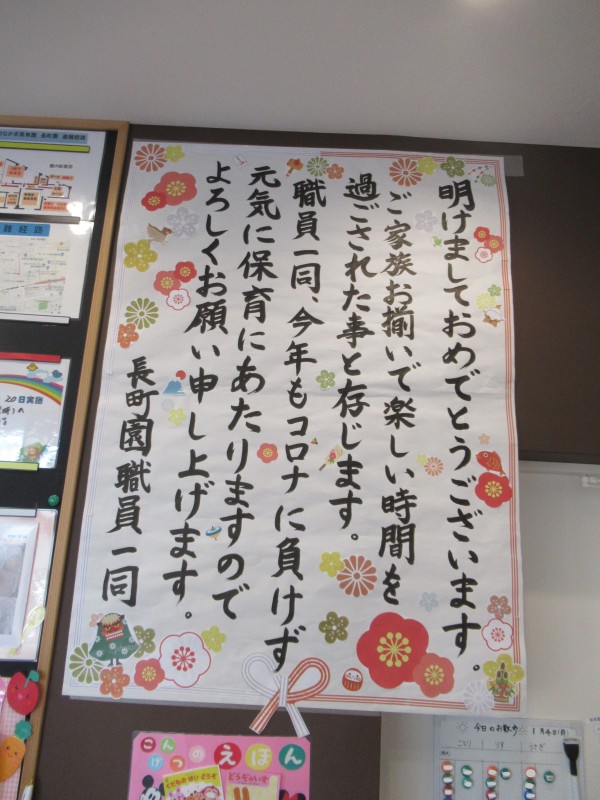 明けましておめでとうございます。
ご家族お揃いで楽しい時間を
過ごされた事と存じます。
職員一同、今年もコロナに負けず
元気に保育にあたりますので
よろしくお願い申し上げます。
長町園職員一同
20日実施
こんげつのえほん
どうぞのいす
今日のお散歩 1月4日(月)
ことり りす うさぎ